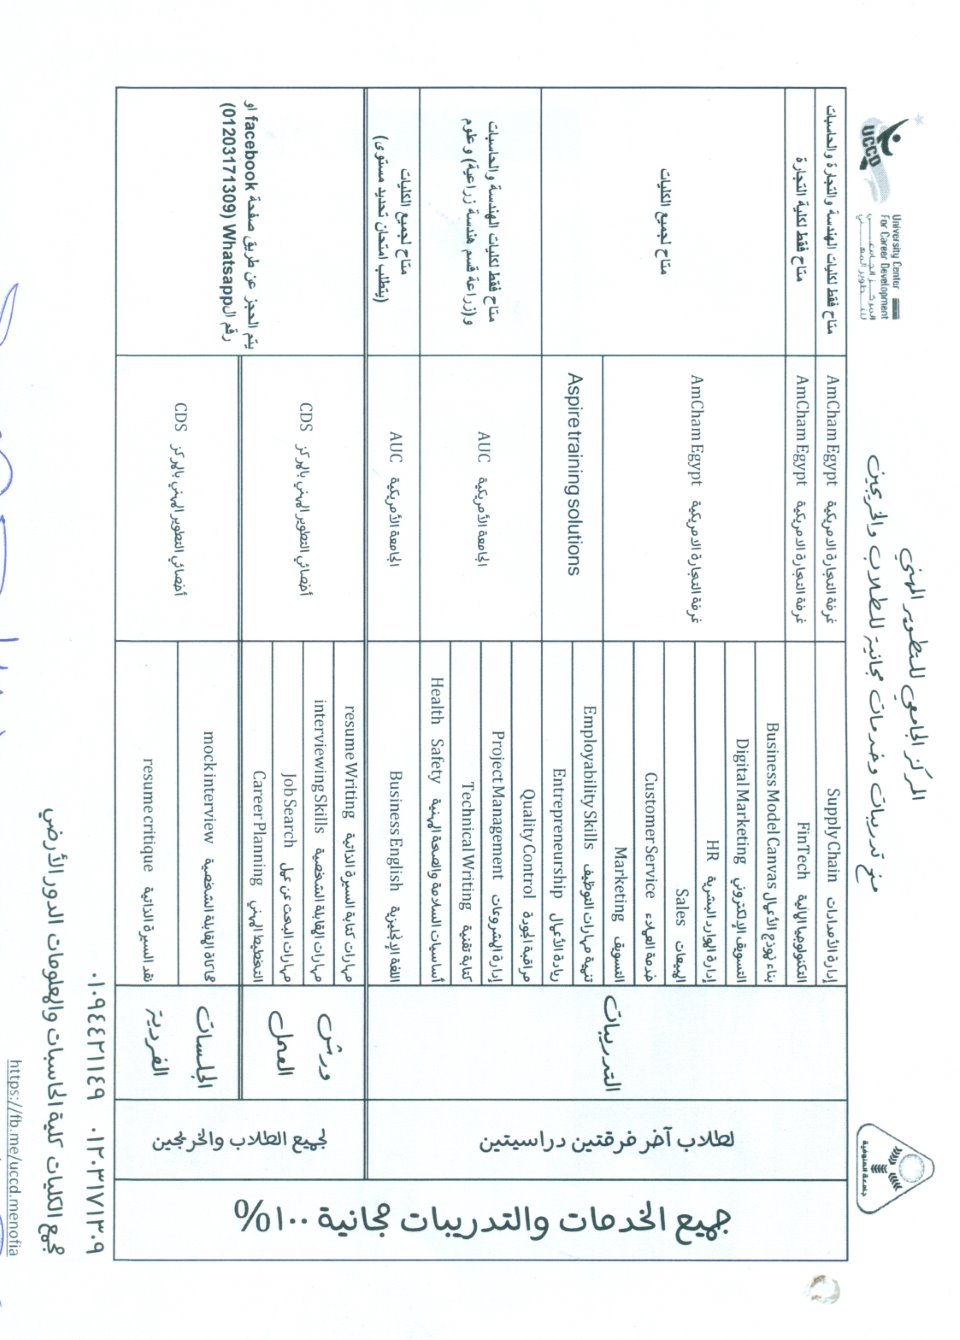 University Center
For Career Development
المركز الجامعي
للتطوير المهني
UCCD
المركز الجامعي للتطوير المهني
منح تدريبات وخدمات مجانية للطلاب والخريجين
جامعة المنوفية
جميع الخدمات والتدريبات مجانية ١٠٠%
لطلاب آخر فرقتين دراسيتين
التدريبات
إدارة الأمدادات Supply Chain
غرفة التجارة الامريكية AmCham Egypt
متاح فقط لكليات الهندسة والتجارة والحاسبات
التكنولوجيا المالية FinTech
غرفة التجارة الامريكية AmCham Egypt
متاح فقط لكلية التجارة
بناء نموذج الأعمال Business Model Canvas
التسويق الإلكتروني Digital Marketing
إدارة الموارد البشرية HR
المبيعات Sales
خدمة العملاء Customer Service
التسويق Marketing
غرفة التجارة الامريكية AmCham Egypt
متاح لجميع الكليات
تنمية مهارات التوظيف Employability Skills
ريادة الأعمال Entrepreneurship
Aspire training solutions
مراقبة الجودة Quality Control
إدارة المشروعات Project Management
كتابة تقنية Technical Writing
أساسيات السلامة والصحة المهنية Health Safety
الجامعة الأمريكية AUC
متاح فقط لكليات الهندسة والحاسبات
و(زراعة قسم هندسة زراعية) و علوم
اللغة الإنجليزية Business English
الجامعة الأمريكية AUC
متاح لجميع الكليات
(يتطلب امتحان تحديد مستوى)
لجميع الطلاب والخريجين
ورش
العمل
مهارات كتابة السيرة الذاتية resume Writing
مهارات المقابلة الشخصية interviewing Skills
مهارات البحث عن عمل Job Search
التخطيط المهني Career Planning
أخصائي التطوير المهني بالمركز CDS
يتم الحجز عن طريق صفحة facebook او
رقم ال Whatsapp (01203171309)
الجلسات
الفردية
محاكاة المقابلة الشخصية mock interview
نقد السيرة الذاتية resume critique
أخصائي التطوير المهني بالمركز CDS
٠١٢٠٣١٧١٣٠٩ ٠١٠٩٤٤٢١١٤٩
مجمع الكليات كلية الحاسبات والمعلومات الدور الأرضي
https://fb.me/uccd.menofia